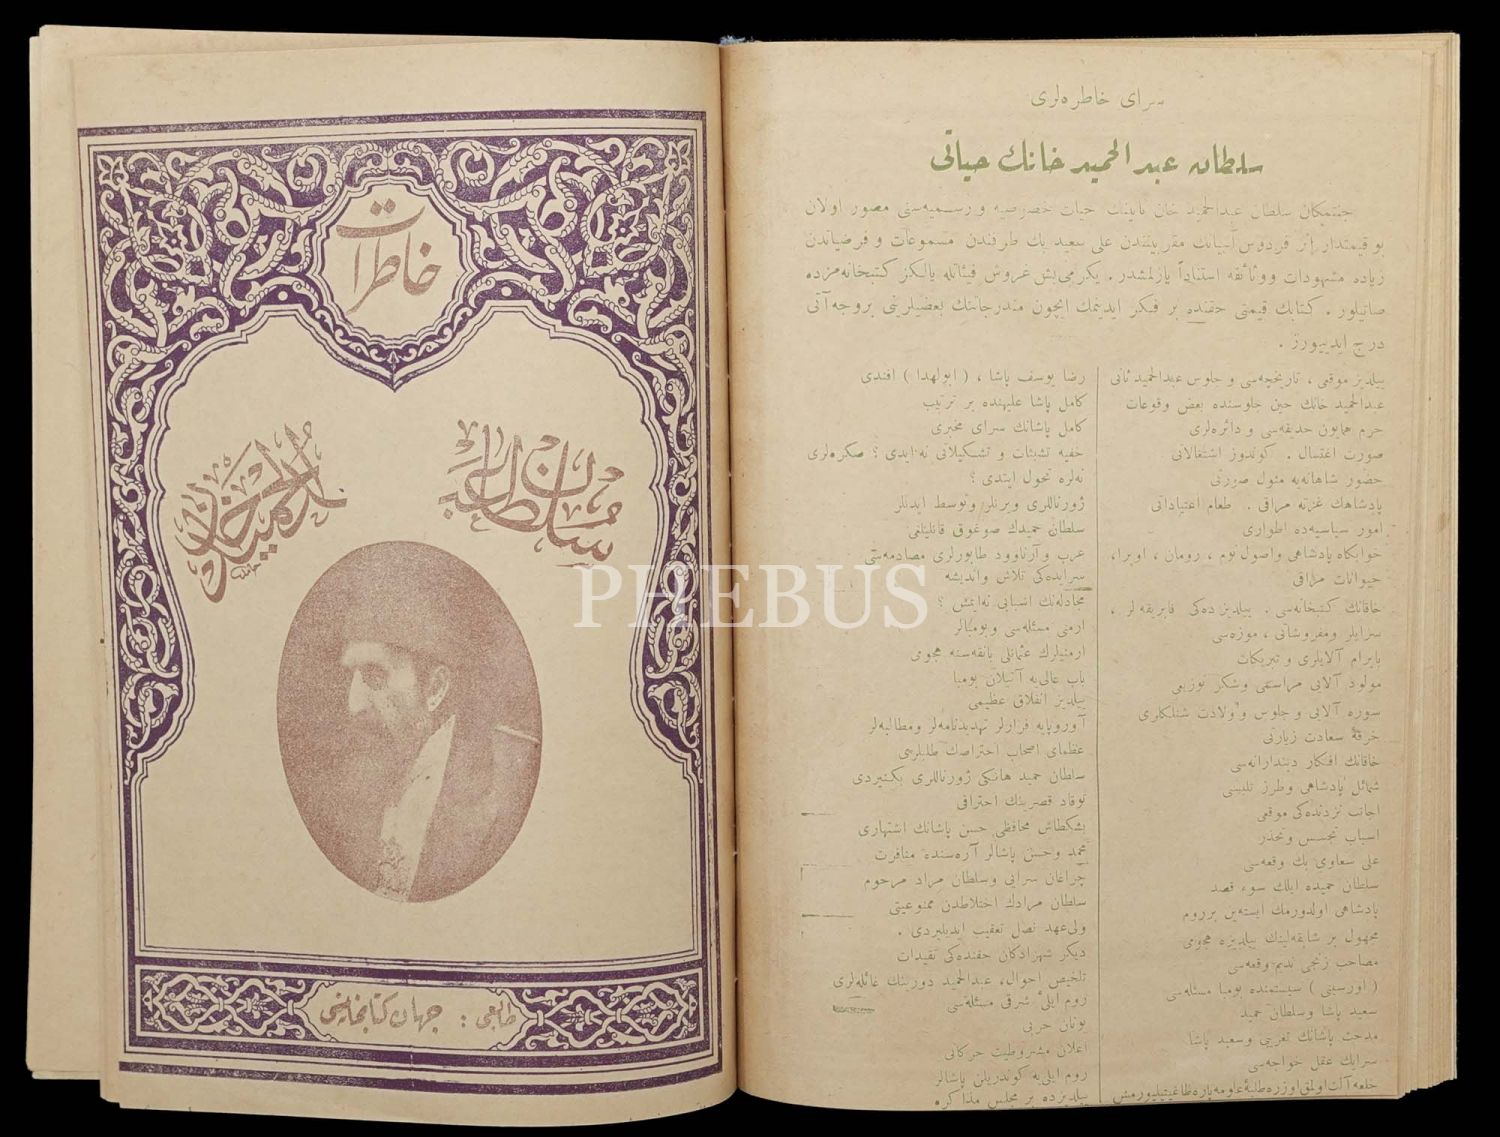 خاطرات
سلطان عبد
الحمید خان
حامد
طابعی : جهان کتابخانه‌سی
سرای خاطره‌لری
سلطان عبد الحمید خانك حیاتی
جنتمكان سلطان عبدالحمید خان ثانینك حیات خصوصیه و رسمیه‌سنی مصور اولان
بو قیمتدار اثر فردوس آشیانك مقربیندن علی سعید بك طرفندن مسموعات و فرضیاتدن
زیاده مشهودات ووثائقه استناداً یازلمشدر . یكرمی‌بش غروش فیئاتله یالكز كتبخانه‌مزده
صاتیلور . كتابك قیمتی حقنده بر فكر ایدینمك ایچون مندرجاتنك بعضیلرینی بروجه‌آتی
درج ایدییورز .
ییلدیز موقعی ، تاریخچه‌سی و جلوس عبدالحمید ثانی
عبدالحمید خانك حین جلوسنده بعض وقوعات
حرم همایون حدیقه‌سی و دائره‌لری
صورت اغتسال . كوندوز اشتغالاتی
حضور شاهانه‌یه مثول صورتی
پادشاهك غزته مراقی . طعام اعتیاداتی
امور سیاسیه‌ده اطواری
خوابكاه پادشاهی واصول نوم ، رومان ، اوپرا،
حیوانات مراقی
خاقانك كتبخانه‌سی . ییلدیزده‌كی فابریقه‌لر ،
سرایلر ومفروشاتی ، موزه‌سی
بایرام آلایلری و تبریكات
مولود آلایی مراسمی وشكر توزیعی
سوره آلایی و جلوس و ولادت شنلكلری
خرقهٔ سعادت زیارتی
خاقانك افكار دیندارانه‌سی
شمائل پادشاهی وطرز تلبسی
اجانب نزدنده‌كی موقعی
اسباب تجسس وتحذر
علی سعاوی بك وقعه‌سی
سلطان حمیده ایلك سوء قصد
پادشاهی اولدورمك ایسته‌ین برروم
مجهول بر شابقه‌لینك ییلدیزه هجومی
مصاحب زنجی ندیم وقعه‌سی
( اورسینی ) سیستمنده بومبا مسئله‌سی
سعید پاشا وسلطان حمید
مدحت پاشانك تغریبی وسعید پاشا
سرایك عقل خواجه‌سی
رضا یوسف پاشا ، ( ابولهدا ) افندی
كامل پاشا علیهنده بر ترتیب
كامل پاشانك سرای مخبری
خفیه تشبثات و تشكیلاتی نه‌ایدی ؟ صكره‌لری
نه‌لره تحول ایتدی ؟
ژورناللری ویرنلر وتوسط ایدنلر
سلطان حمیدك صوغوق قانلیلغی
عرب و آرناوود طابورلری مصادمه‌سی
سرایده‌كی تلاش واندیشه
مجادله‌نك اسبابی نه‌ایمش ؟
ارمنی مسئله‌سی وبومبالر
ارمنیلرك عثمانلی بانقه‌سنه هجومی
باب عالی‌یه آتیلان بومبا
ییلدیز انفلاق عظیمی
آوروپایه فرارلر تهدیدنامه‌لر ومطالبه‌لر
عظمای اصحاب احتراصك طلبلری
سلطان حمید هانكی ژورناللری بكنیردی
توقاد قصرینك احتراقی
بشكطاش محافظی حسن پاشانك اشتهاری
محمد وحسن پاشالر آره‌سنده منافرت
چراغان سرایی وسلطان مراد مرحوم
سلطان مرادك اختلاطدن ممنوعیتی
ولی‌عهد نصل تعقیب ایدیلیردی .
دیكر شهزادكان حقنده‌كی تقیدات
تلخیص احوال، عبدالحمید دورینك غائله‌لری
روم ایلی شرقی مسئله‌سی
یونان حربی
اعلان مشروطیت حركاتی
روم ایلی‌یه كوندریلن پاشالر
ییلدیزده بر مجلس مذاكره
PHEBUS